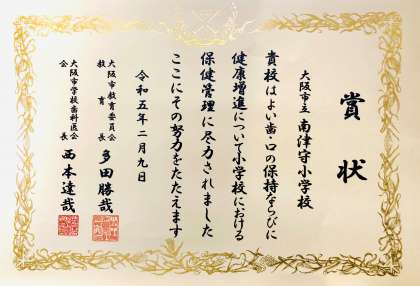 賞状
大阪市立 南津守小学校
貴校はよい歯・口の保持ならびに
健康増進について小学校における
保健管理に尽力されました
ここにその努力をたたえます
令和五年二月九日
大阪市教育委員会
教育長 多田勝哉
大阪市学校歯科医会
会長 西本達哉